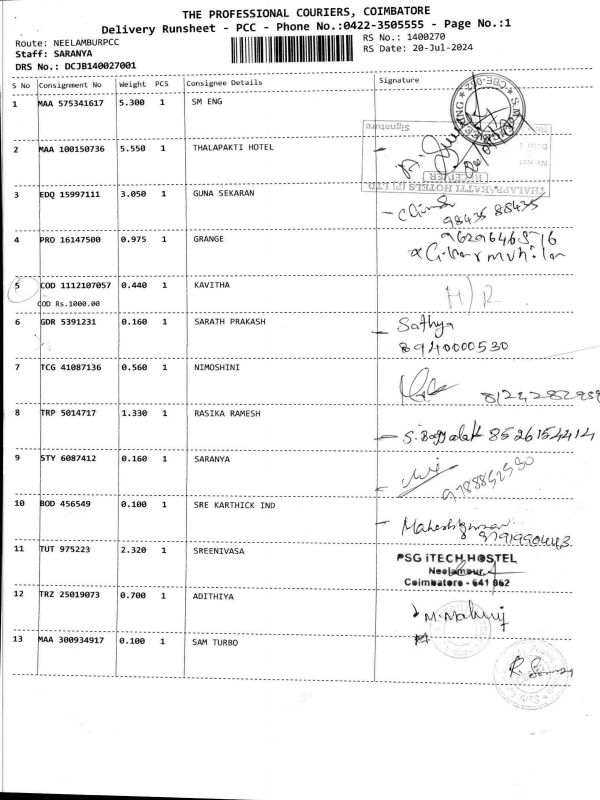 THE PROFESSIONAL COURIERS, COIMBATORE
Delivery Runsheet - PCC - Phone No.:0422-3505555 - Page No.:1
Route: NEELAMBURPCC
RS No.: 1400270
Staff: SARANYA
RS Date: 20-Jul-2024
DRS No.: DCJB140027001
S No Consignment No Weight PCS Consignee Details Signature
1 MAA 575341617 5.300 1 SM ENG
2 MAA 100150736 5.550 1 THALAPAKTI HOTEL
Signature
RECEIVER
THALAPPAKATTI HOTELS (P) LTD
3 EDQ 15997111 3.050 1 GUNA SEKARAN
98435 88435
4 PRO 16147500 0.975 1 GRANGE
9629646576
5 COD 1112107057 0.440 1 KAVITHA
H/R
COD Rs.1000.00
6 GDR 5391231 0.160 1 SARATH PRAKASH
Sathya
8940000530
7 TCG 41087136 0.560 1 NIMOSHINI
8 TRP 5014717 1.330 1 RASIKA RAMESH
8526154414
9 STY 6087412 0.160 1 SARANYA
9788852530
10 BOD 456549 0.100 1 SRE KARTHICK IND
11 TUT 975223 2.320 1 SREENIVASA
PSG iTECH HOSTEL
Neelambur
Coimbatore - 641 062
12 TRZ 25019073 0.700 1 ADITHIYA
13 MAA 300934917 0.100 1 SAM TURBO